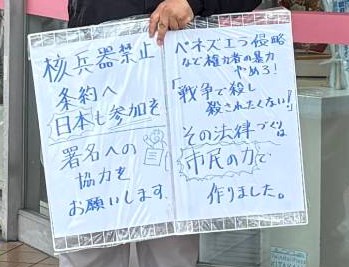 核兵器禁止
条約へ
日本も参加を
署名への
協力を
お願いします
ベネズエラ侵略
など権力者の暴力
やめろ!
「戦争で殺し
殺されたくない!」
その法律づくりは
市民の力で
作りました。